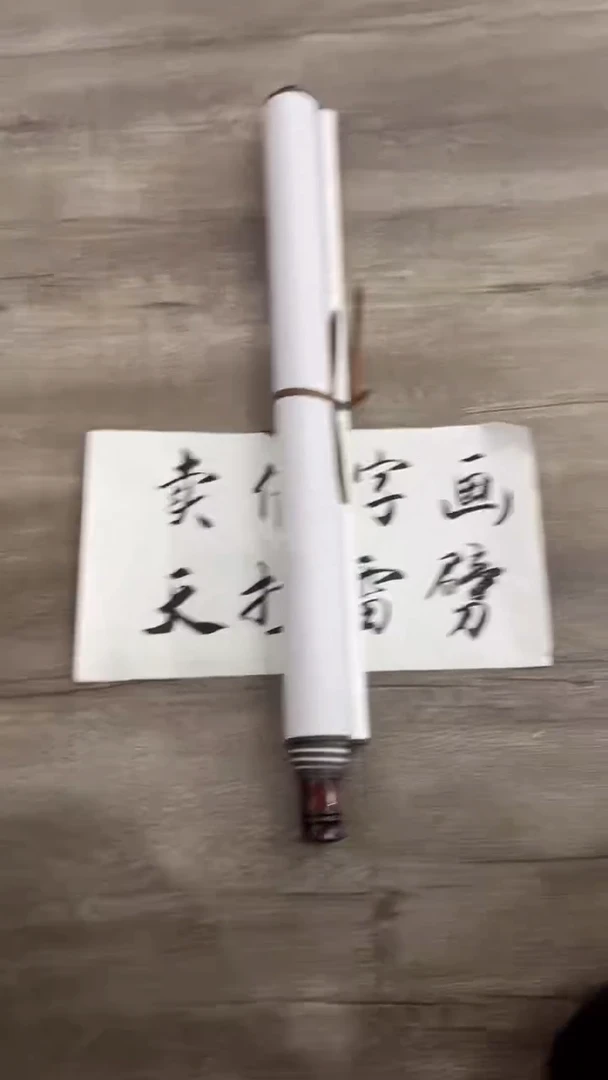 卖字画
天打雷劈